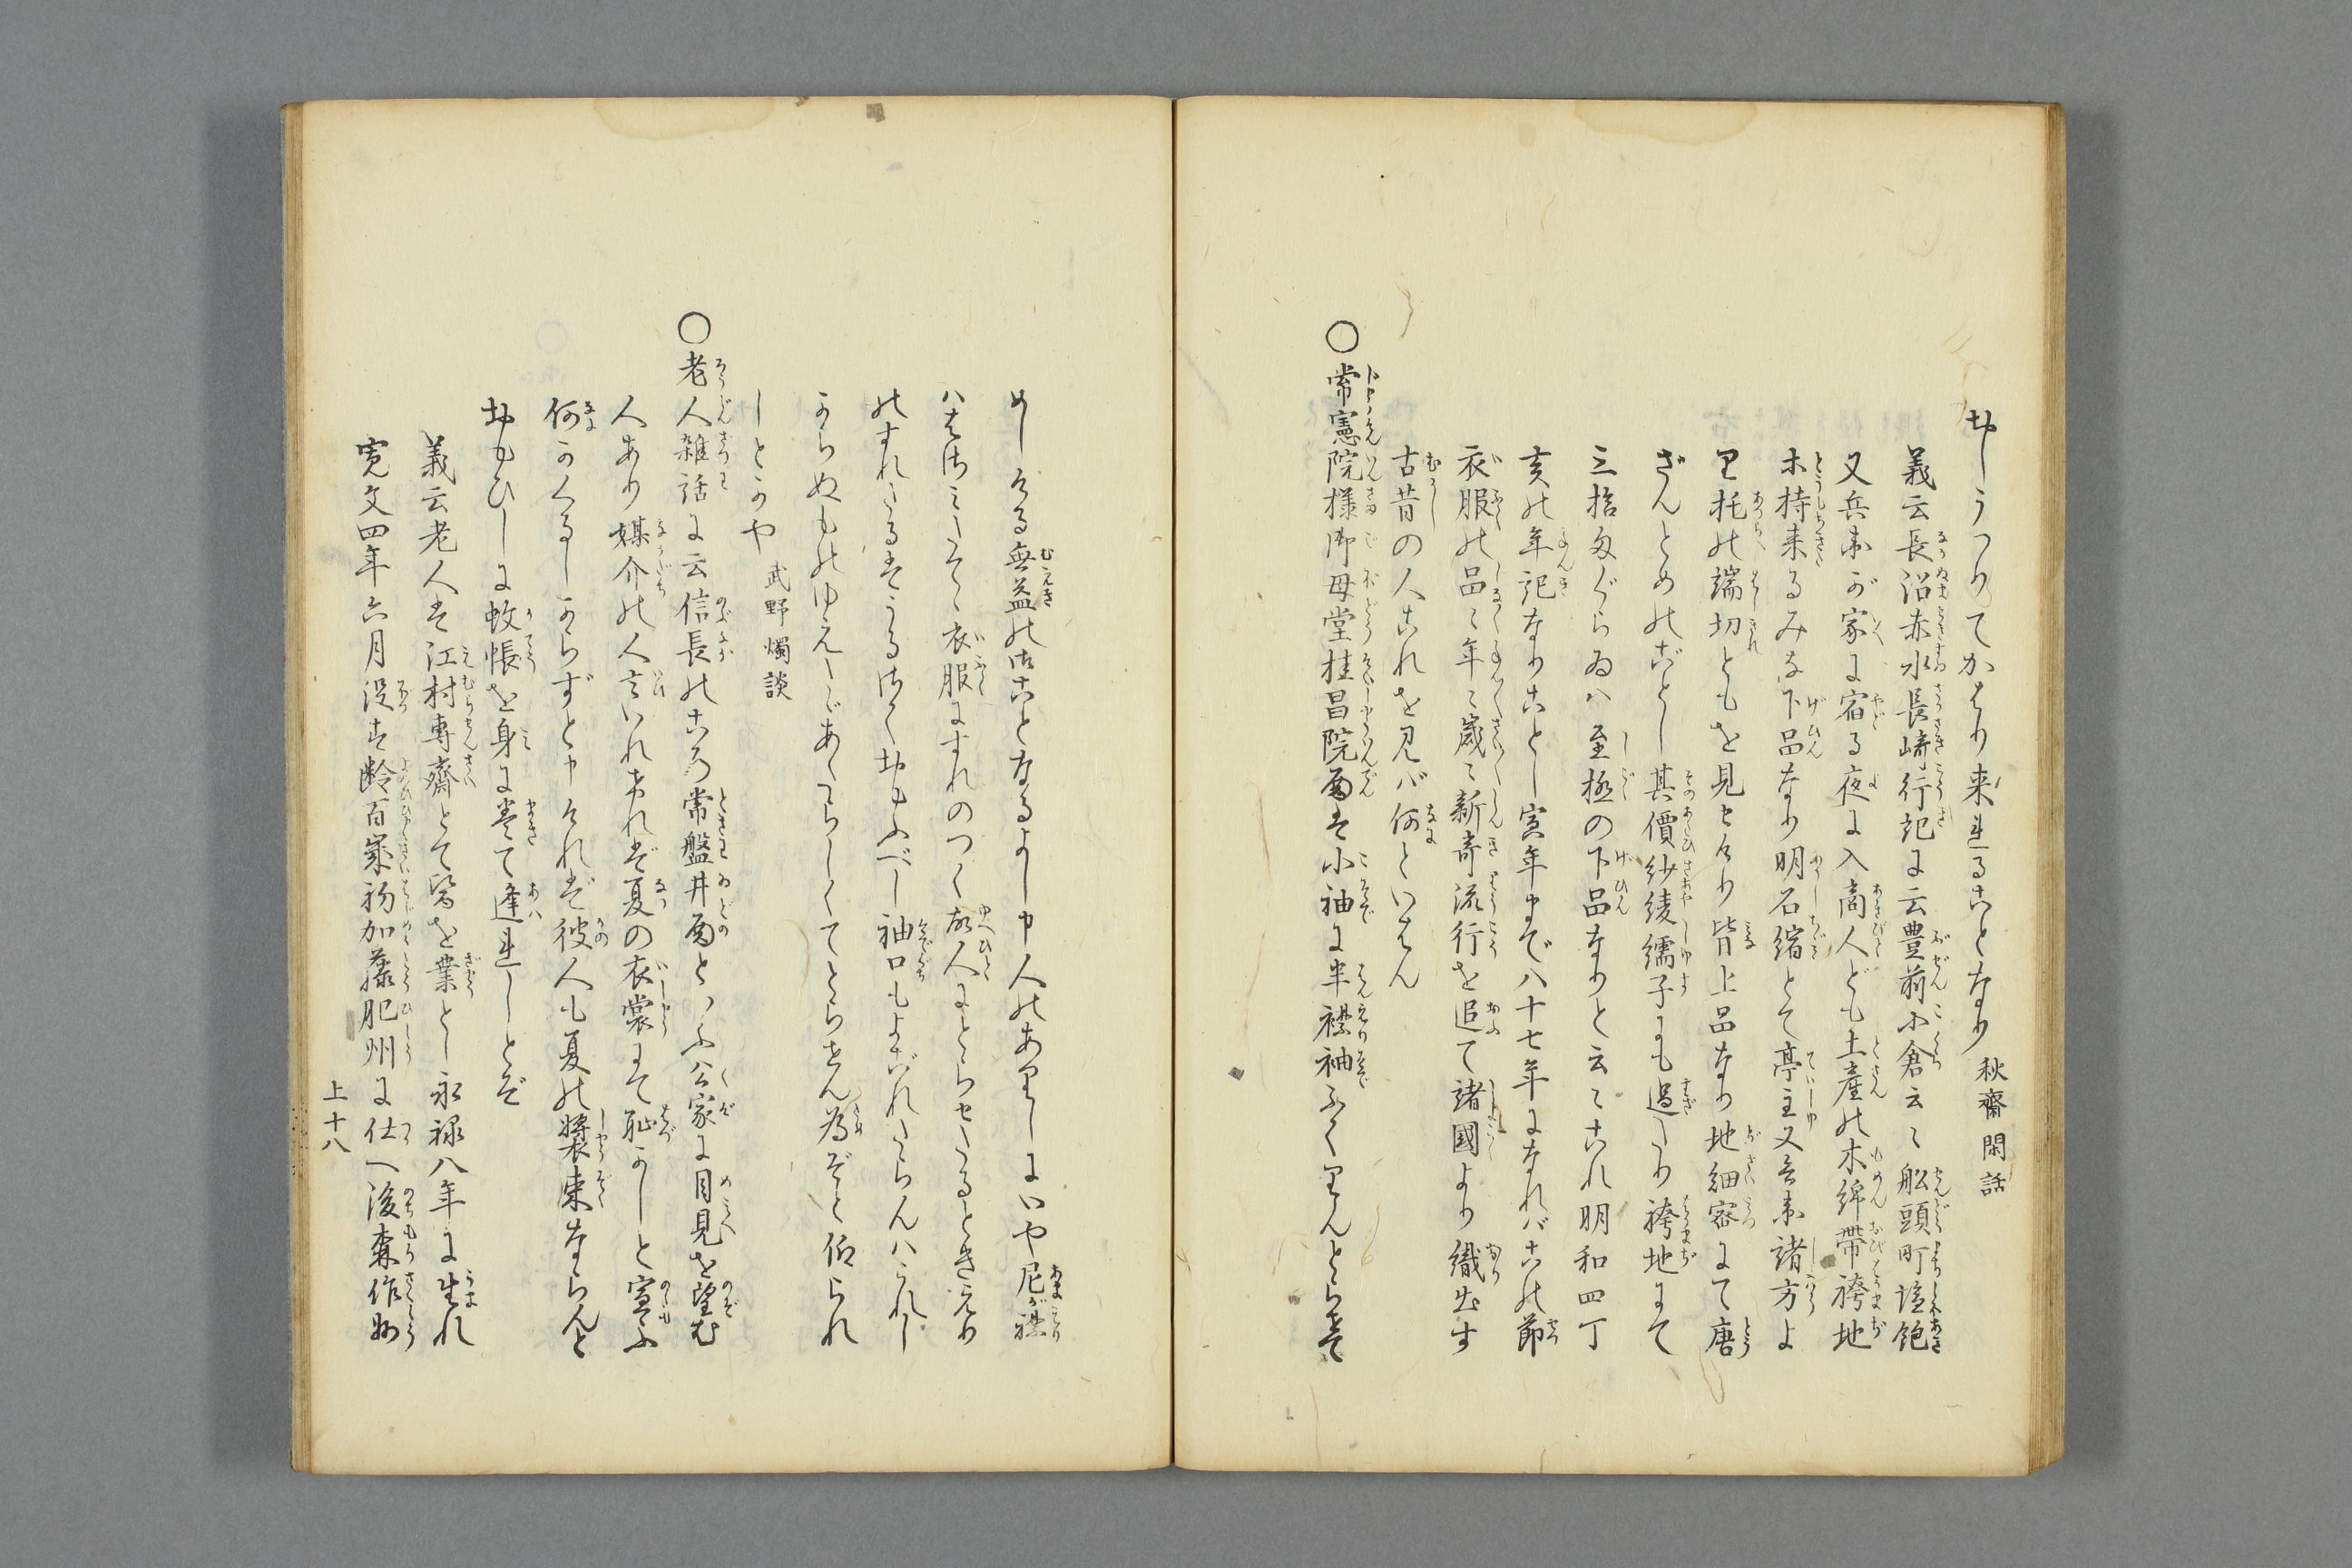 おしうつりてかはり来れることなり 秋齋閑話
義云長沼赤水長崎行記に云豊前小倉云々船頭町塩飽
又兵衛が家に宿る夜に入商人ども土産の木綿帯袴地
等持来るみな下品なり明石縮とて亭主又兵衛諸方よ
り托の端切ともを見せけり皆上品なり地細密にて唐
ざんとめのごとし其價紗綾繻子にも過たり袴地にて
三拾匁ぐらゐハ至極の下品なりと云々これ明和四丁
亥の年記なりことし寅年まで八十七年になれバこの節
衣服の品々年々歳々新奇流行を追て諸國より織出す
古昔の人これを見バ何といはん
○常憲院様御母堂桂昌院殿は小袖に半襟袖ふくりんとらせて
めしける無益の御ことなるよし申人のありしにいや尼が襟
ハはばみたぞ衣服にすれのつく故人にとらせたるときえり
のすれたるはうる御くおもふべし袖口もよごれたらんハうれし
からぬものゆえたゞあたらしくてとらせん為ぞと仰られ
しとかや 武野燭談
○老人雑話に云信長のころ常盤井殿といふ公家に目見を望む
人あり媒介の人言いれければ夏の衣裳にて恥かしと宣ふ
何かくるしからずと申ければ彼人も夏の装束ならんと
おもひしに蚊帳を身に巻て逢れしとぞ
義云老人は江村專齋とて醫を業とし永禄八年に生れ
寛文四年六月没す齢百歳初加藤肥州に仕へ後森作州
上十八